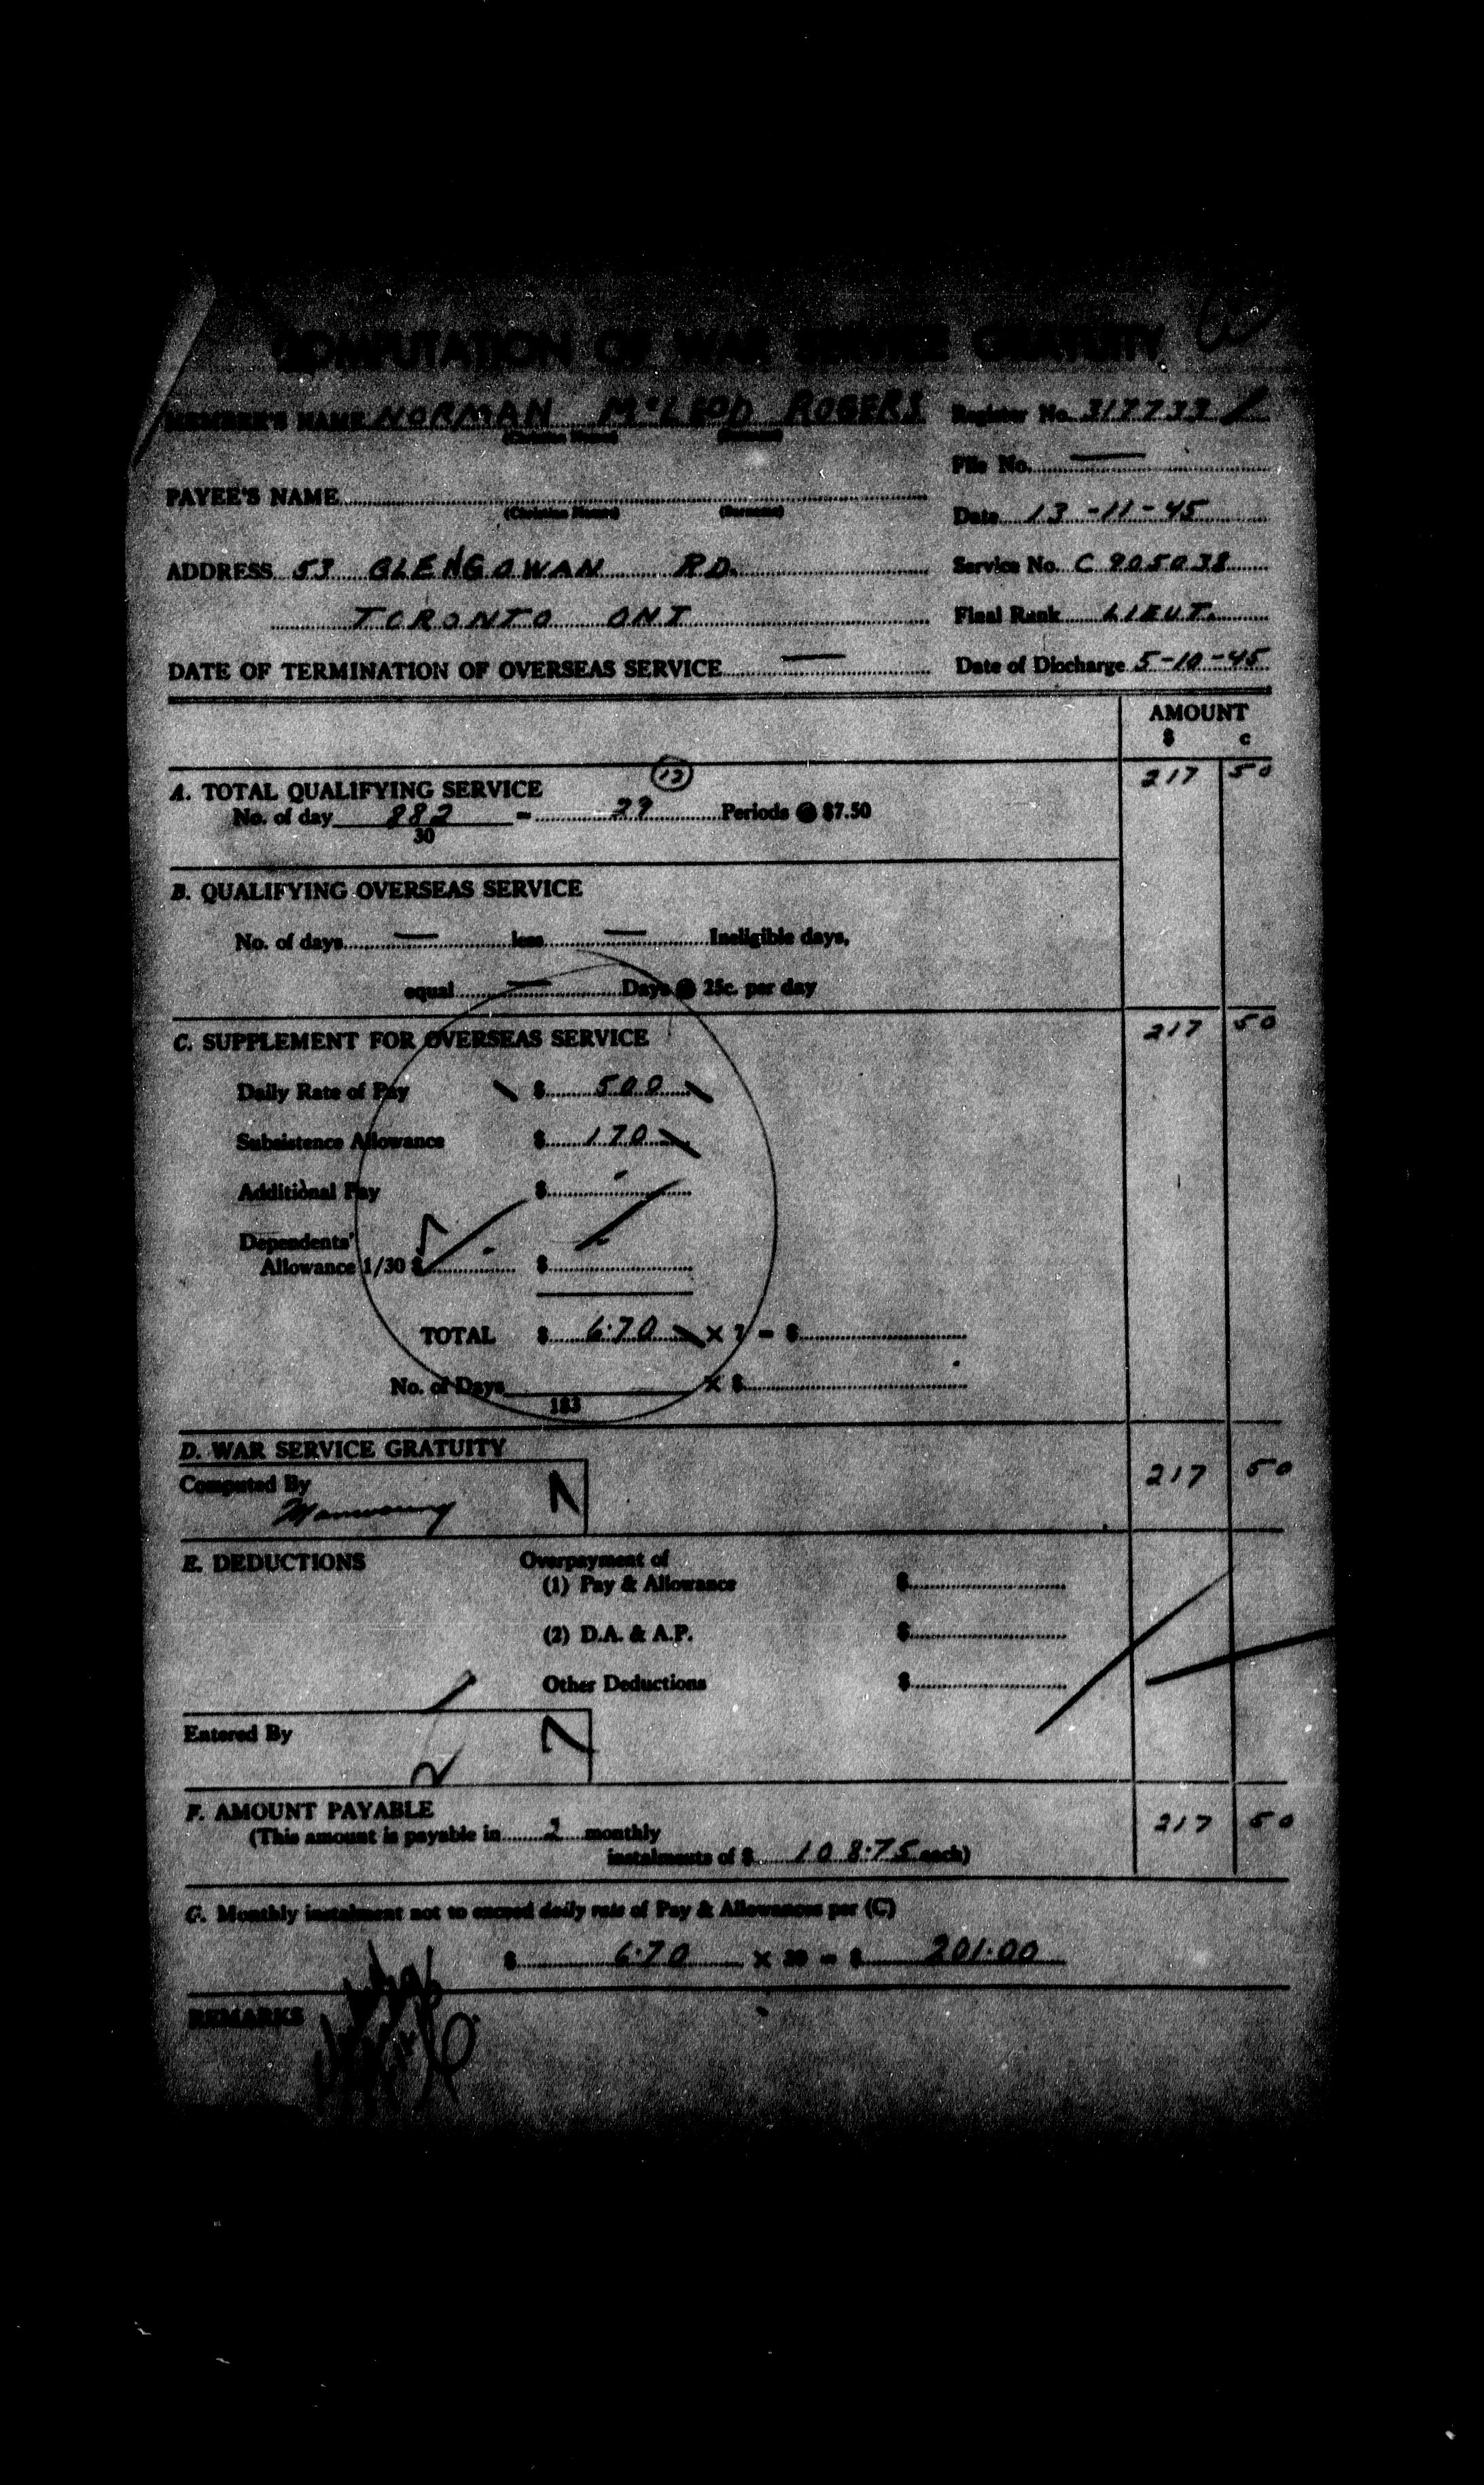 COMPUTATION OF WAR SERVICE GRATUITY
MEMBER'S NAME NORMAN McLEOD ROGERS Register No. 317733
(Christian Names) (Surname)
File No. —
PAYEE'S NAME
(Christian Names) (Surname)
Date 13-11-45
ADDRESS 53 GLENGOWAN RD. Service No. C 905038
TORONTO ONT Final Rank LIEUT.
DATE OF TERMINATION OF OVERSEAS SERVICE — Date of Discharge 5-10-45
AMOUNT
$ c
A. TOTAL QUALIFYING SERVICE 217 50
No. of day 882 = 29 (12) Periods @ $7.50
30
B. QUALIFYING OVERSEAS SERVICE
No. of days — less — Ineligible days,
equal — Days @ 25c. per day
C. SUPPLEMENT FOR OVERSEAS SERVICE 217 50
Daily Rate of Pay $ 500
Subsistence Allowance $ 170
Additional Pay $ -
Dependents'
Allowance 1/30 $ - $ -
TOTAL $ 6.70 × 7 = $
No. of Days × $
183
D. WAR SERVICE GRATUITY 217 50
Computed By
E. DEDUCTIONS Overpayment of
(1) Pay & Allowance $
(2) D.A. & A.P. $
Other Deductions $
Entered By
F. AMOUNT PAYABLE 217 50
(This amount is payable in 2 monthly
instalments of $ 108.75 each)
G. Monthly instalment not to exceed daily rate of Pay & Allowances per (C)
$ 6.70 × 30 = $ 201.00
REMARKS